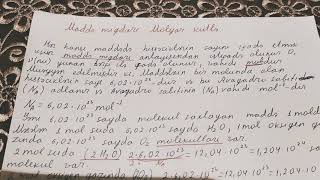 Maddə miqdarı Molyar kütlə.
Hər hansı maddədə hissəciklərin sayını ifadə etmək
üçün maddə miqdarı anlayışından istifadə olunur. O,
ν(nü) yunan hərfi ilə işarə olunur, vahidi moldur.
Müəyyən edilmişdir ki, Maddənin bir molunda olan
hissəciklərin sayı 6,02·10²³ dür və bu Avaqadro sabiti
(N_A) adlanır və Avaqadro sabitinin vahidi mol⁻¹-dir
N_A = 6,02·10²³ mol⁻¹
Yəni 6,02·10²³ sayda molekul saxlayan maddə 1 moldur
1 mol suda 6,02·10²³ sayda H₂O, 1 mol oksigen
6,02·10²³ sayda O₂ molekulları var.
2 mol suda (2H₂O) 2·6,02·10²³ = 12,04·10²³ = 1,204·10²⁴
molekul var.
(O₂) = 12,04·10²³ = 1,204·